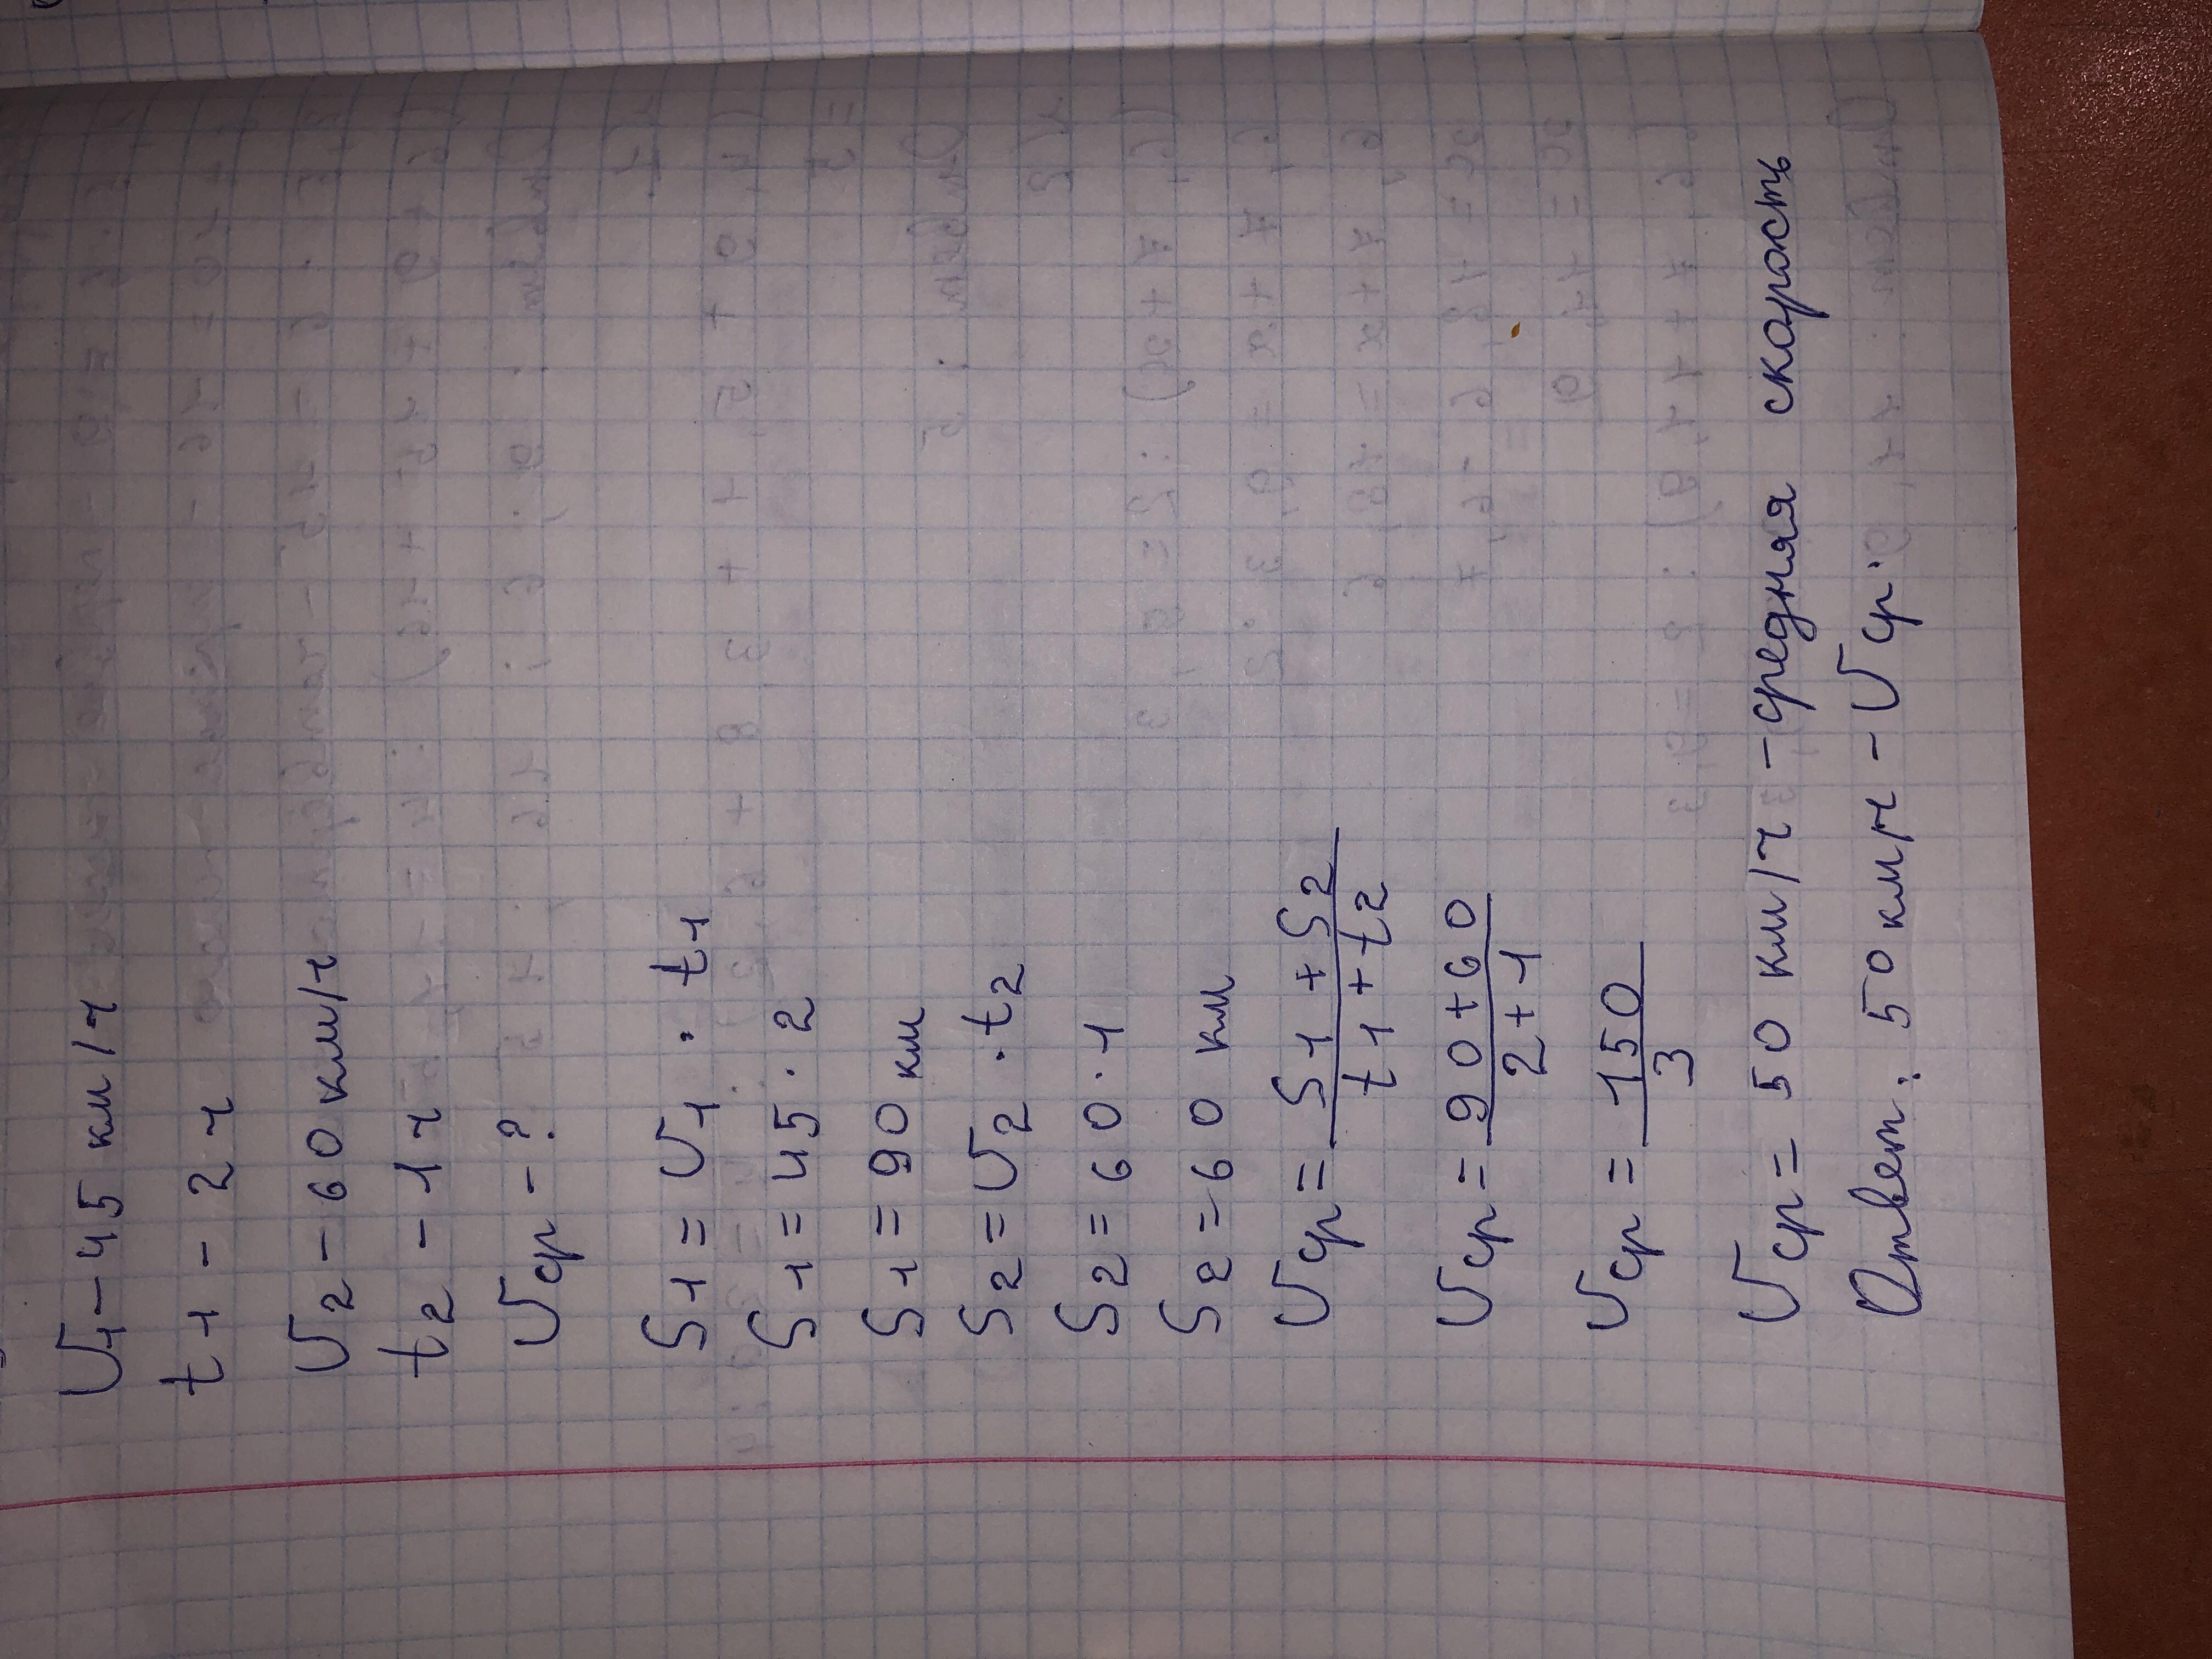 V₁ - 45 км/ч
t₁ - 2 ч
V₂ - 60 км/ч
t₂ - 1 ч
Vср - ?
S₁ = V₁ · t₁
S₁ = 45 · 2
S₁ = 90 км
S₂ = V₂ · t₂
S₂ = 60 · 1
S₂ = 60 км
Vср = (S₁ + S₂) / (t₁ + t₂)
Vср = (90 + 60) / (2 + 1)
Vср = 150 / 3
Vср = 50 км/ч - средняя скорость
Ответ: 50 км/ч - Vср.